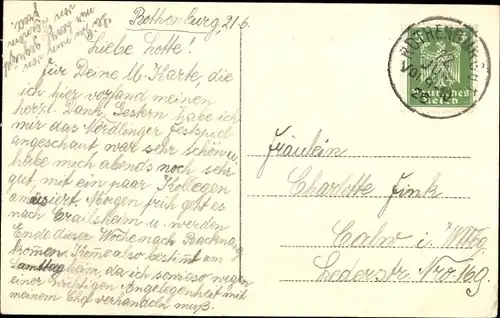 Rothenburg, 21.6.
Liebe Lotte!
Für Deine M. Karte, die
ich hier vorfand meinen
herzl. Dank. Gestern habe ich
mir das Nördlinger Festspiel
angeschaut war sehr schön u.
habe mich abends noch sehr
gut mit ein paar Kollegen
amüsiert. Morgen früh geht es
nach Crailsheim u. werden
Ende dieser Woche nach Backnang
kommen. Komme also bestimmt am
Samstag heim, da ich sowieso wegen
einer wichtigen Angelegenheit mit
meinem Chef verhandeln muß.
ROTHENBURG
Deutsches
Reich
5
Fräulein
Charlotte Fink
Calw i. Wttbg.
Lederstr. Nro. 169